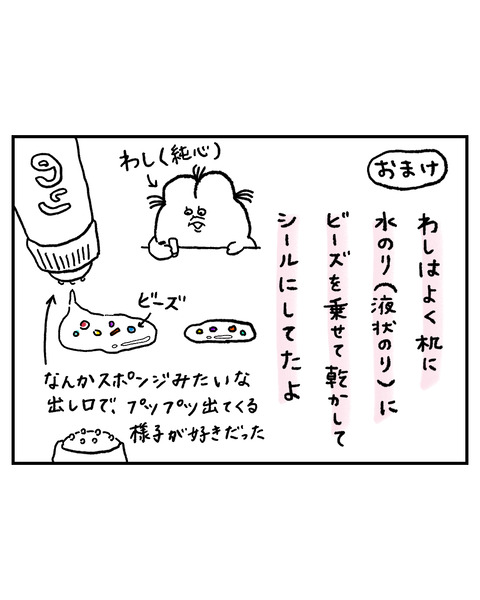 おまけ
わしはよく机に
水のり(液状のり)に
ビーズを乗せて乾かして
シールにしてたよ
わし(純心)
のり
ビーズ
なんかスポンジみたいな
出し口で、プップッ出てくる
様子が好きだった